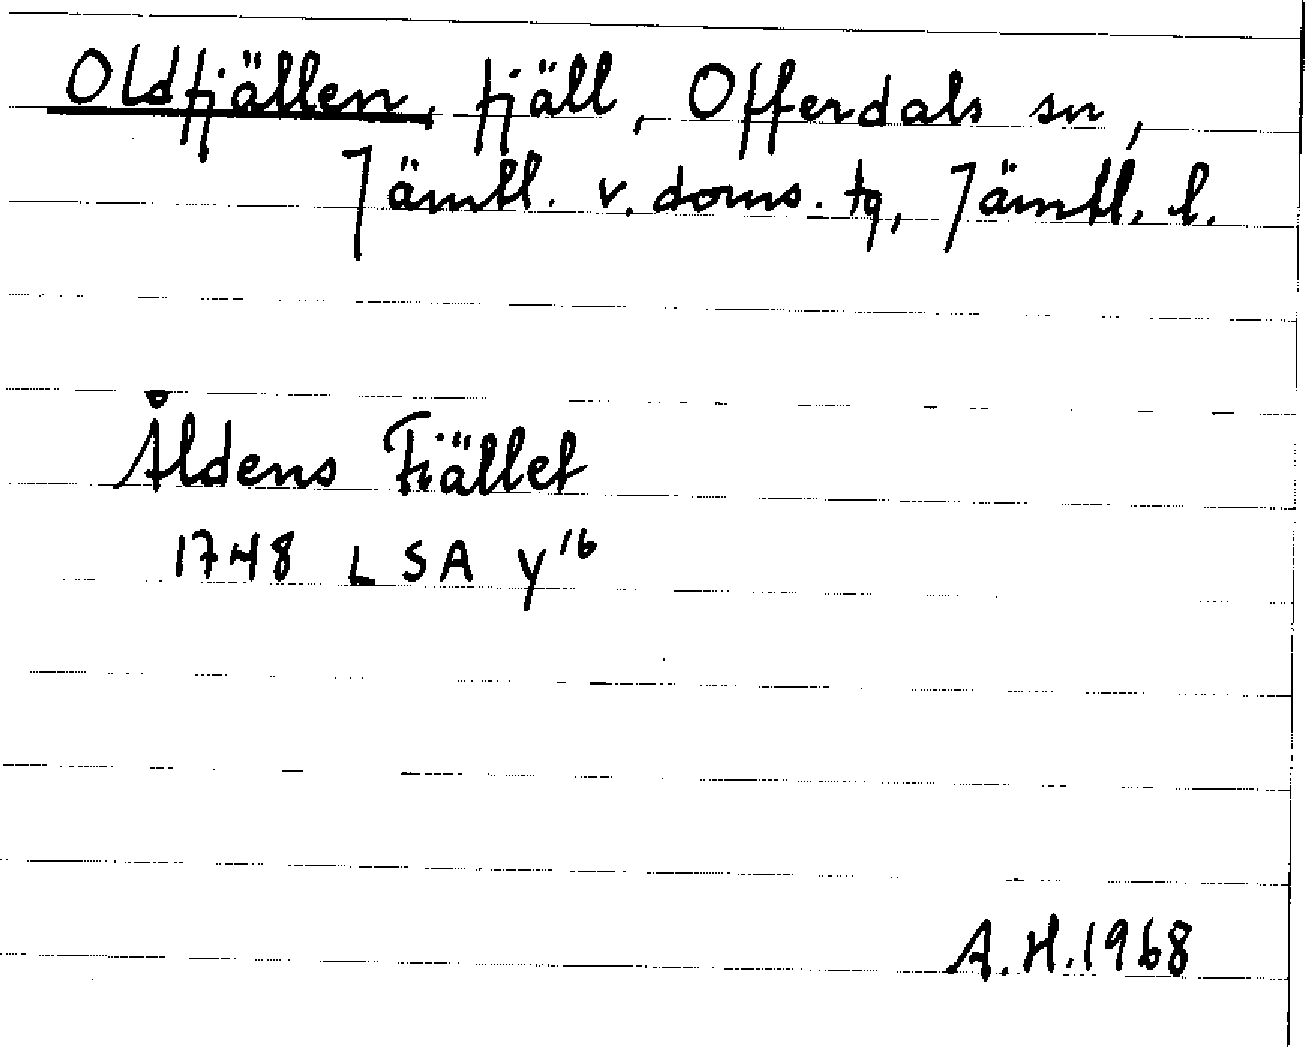 Oldfjällen, fjäll, Offerdals sn,
Jämtl. v. doms. tg, Jämtl. l.
Åldens Fiället
1748 LSA Y¹⁶
A.H. 1968